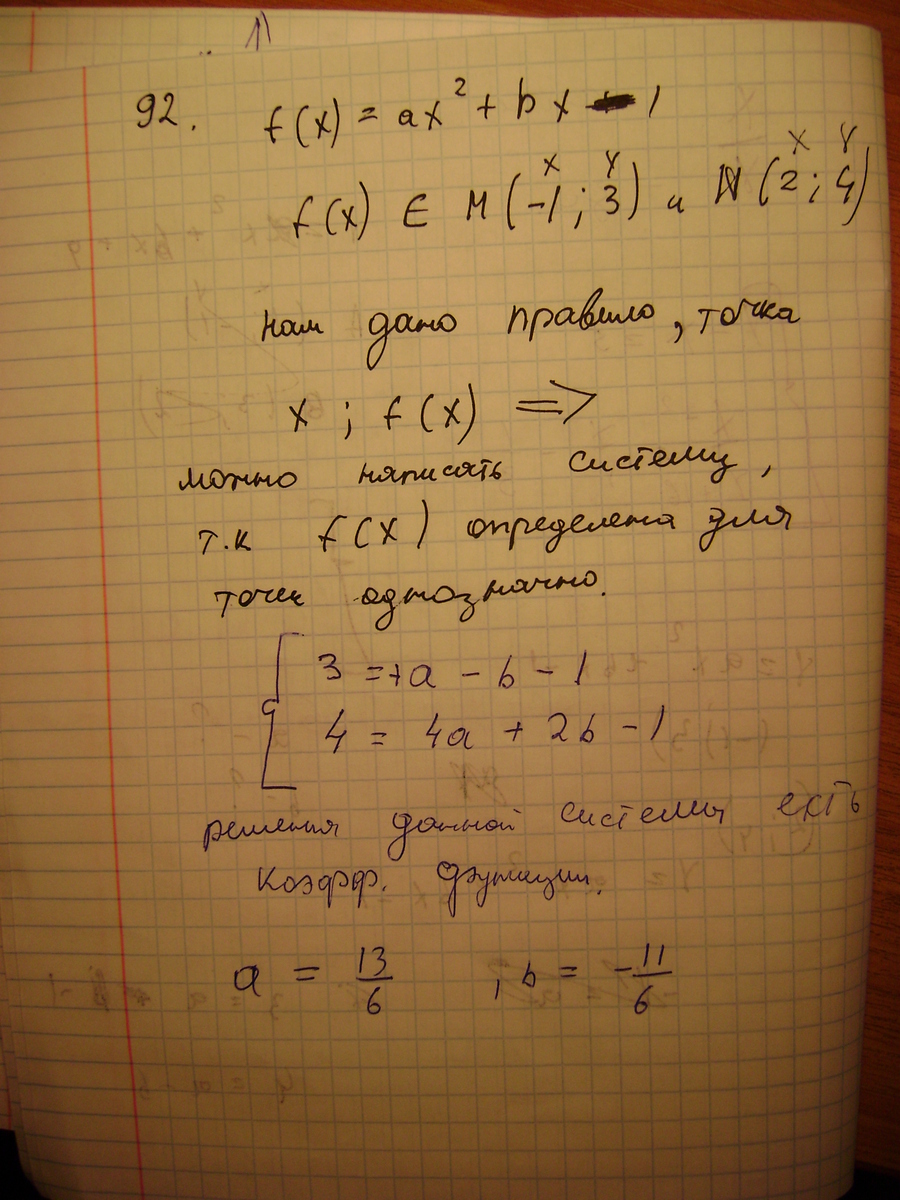 1)
92. f(x) = ax² + bx - 1
x y x y
f(x) ∈ M(-1; 3) и N(2; 4)
нам дано правило, точка
x ; f(x) =>
можно написать систему,
т.к f(x) определена для
точек однозначно.
3 = +a - b - 1
4 = 4a + 2b - 1
решения данной системы есть
коэфф. функции.
a = 13/6 , b = -11/6